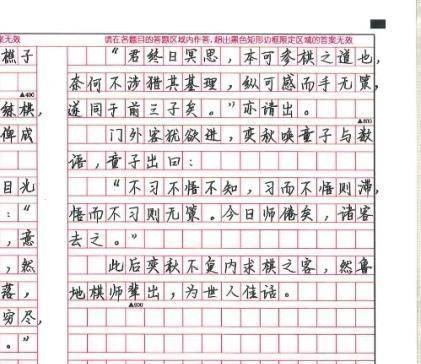 案无效
樵子
▲400
练棋，
俾成
目光
：“
，意
，然
落，
穷尽，
。”
请在各题目的答题区域内作答，超出黑色矩形边框限定区域的答案无效
“君终日冥思，本可参棋之道也，
奈何不涉猎其基理，纵可感而手无策，
遂同于前三子矣。”亦请出。
▲800
门外客犹欲进，奕秋唤童子与数
语，童子出曰：
“不习不悟不知，习而不悟则滞，
悟而不习则无策。今日师倦矣，诸客
去之。”
此后奕秋不复内求棋之客，然鲁
地棋师辈出，为世人佳话。